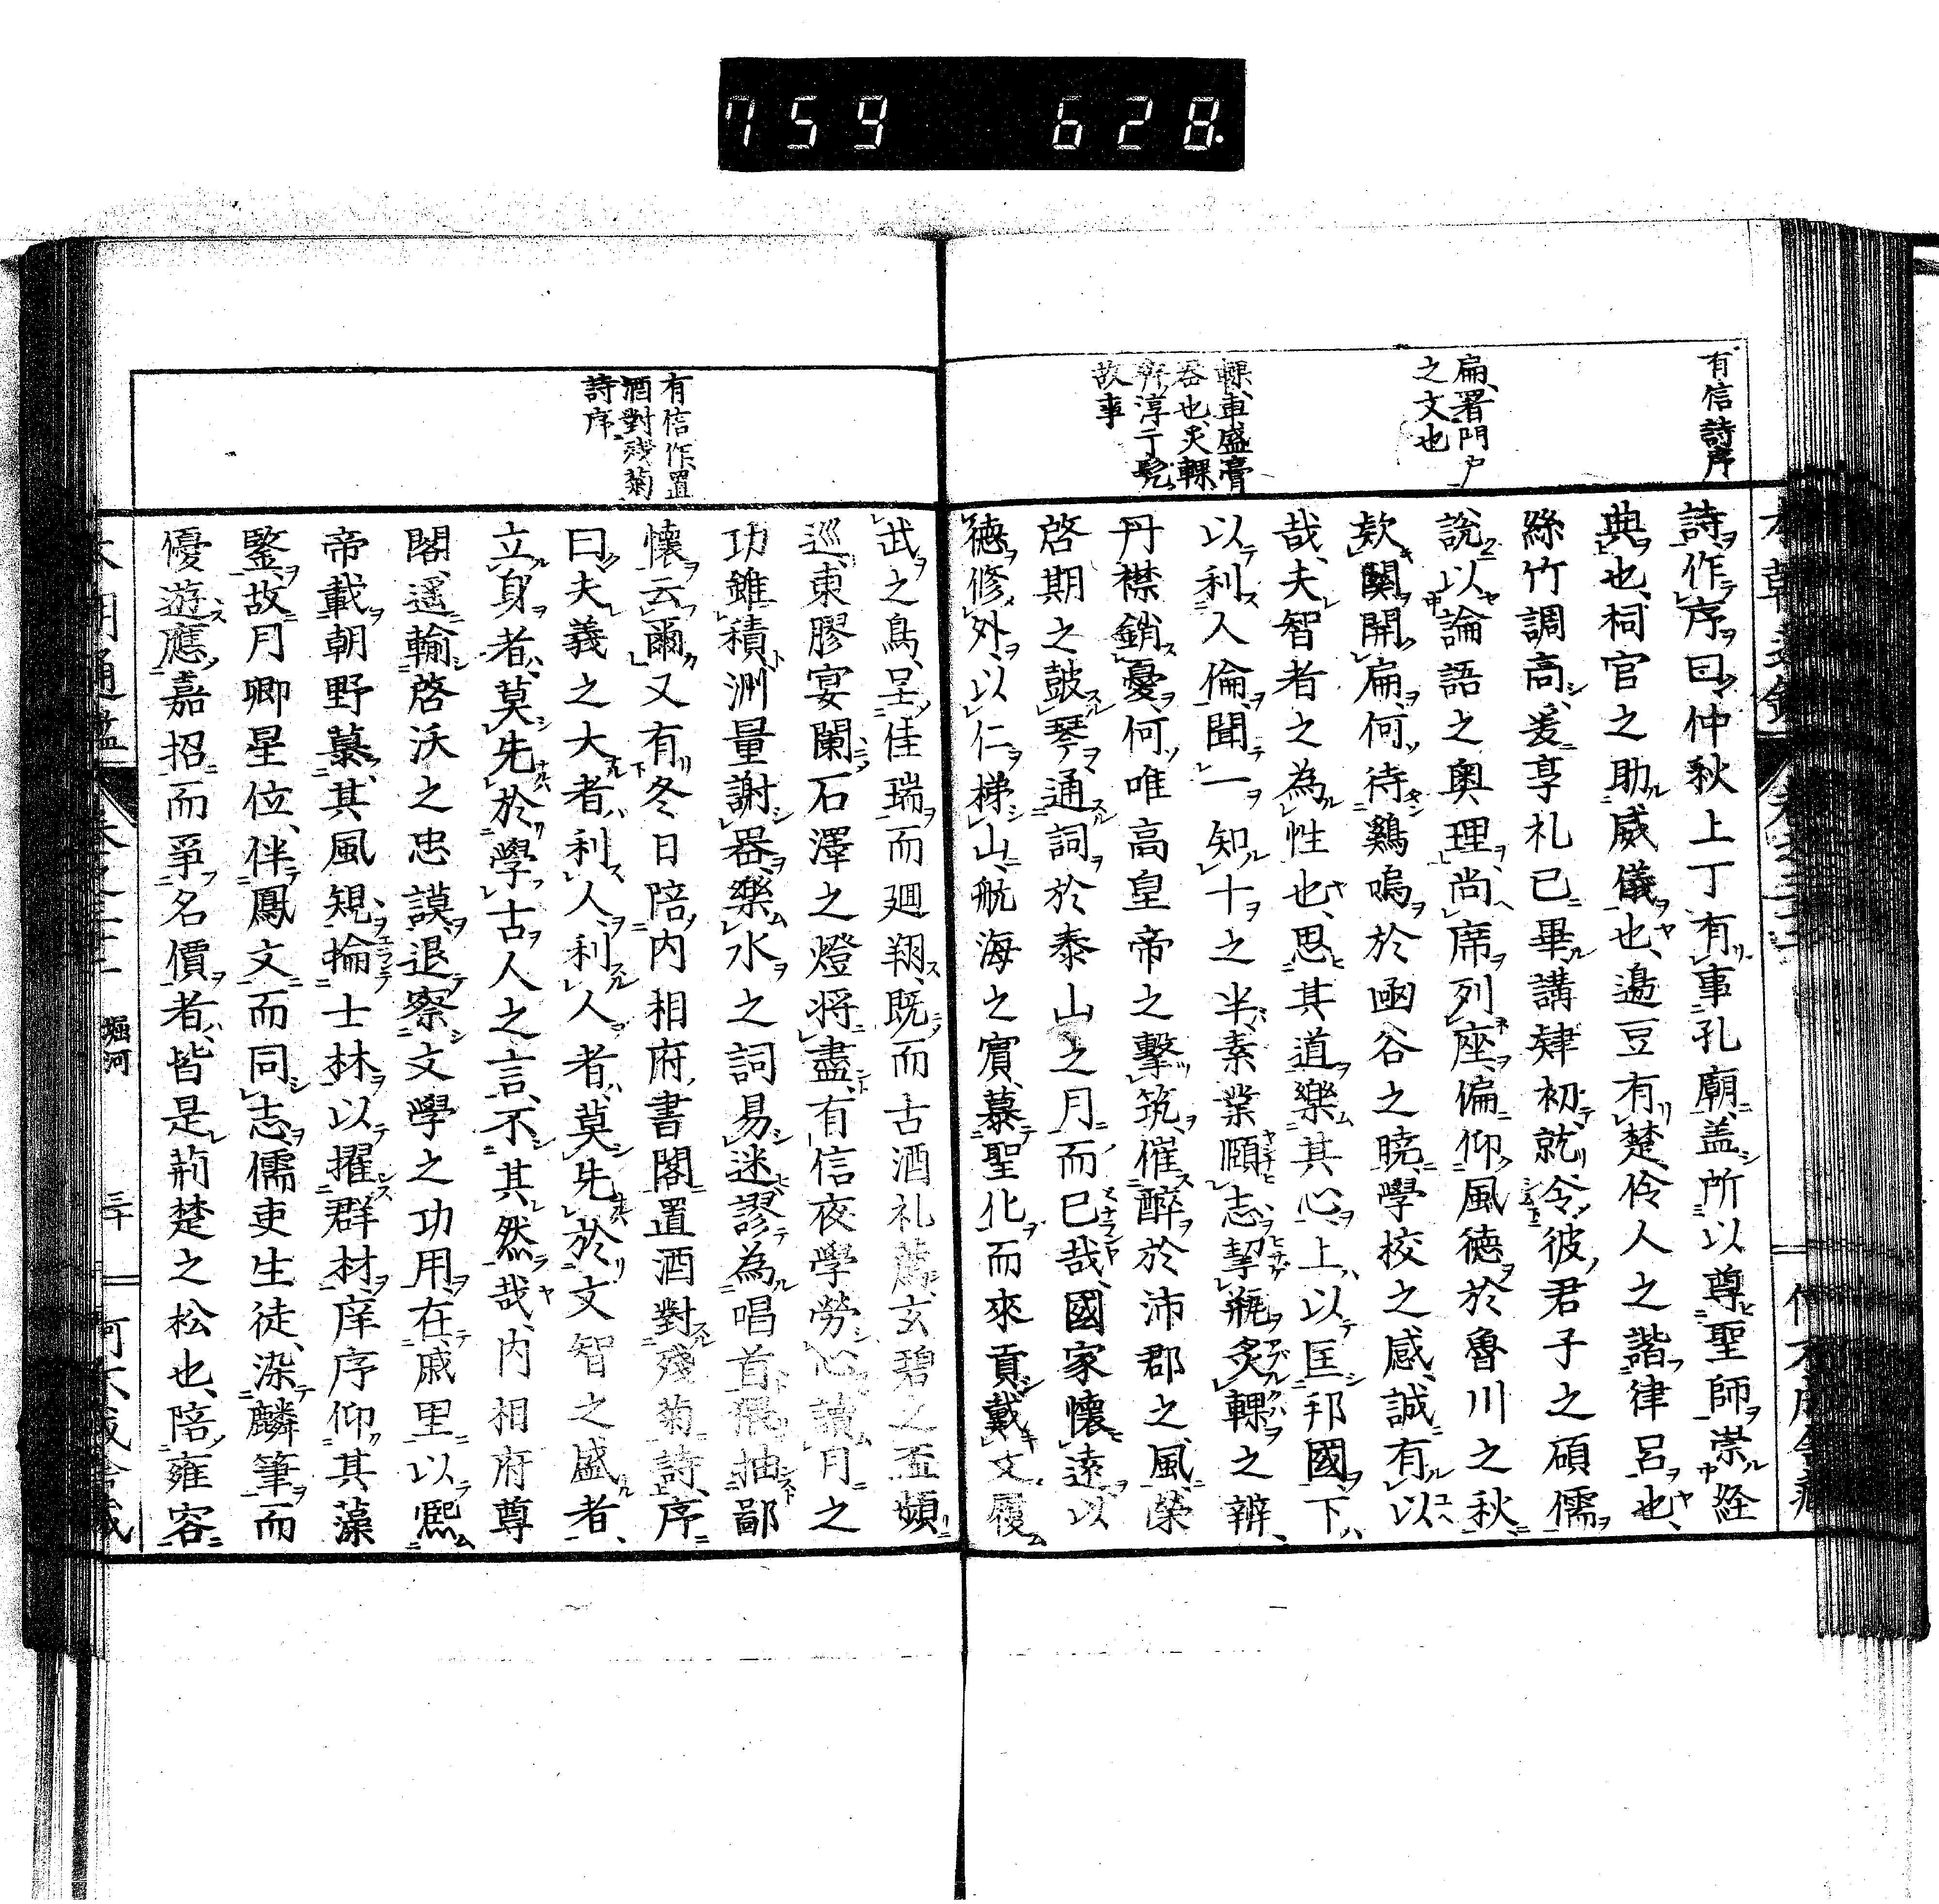 759 628.
有信詩序
扁、署門戸
之文也
輠、車盛膏
器也、炙輠、
淳于髠
故事
詩作序曰仲秋上丁有事孔廟、盖所以尊聖師崇経
典也、祠官之助威儀也、邉豆有楚、伶人之諧律呂也、
絲竹調高、爰享札已畢講肄初就、令彼君子之碩儒
説以論語之奥理、尚席列座、偏仰風徳於魯川之秋
欵關開扁、何待鷄鳴於凾谷之暁、學校之感、誠有以
哉、夫智者之為性也、思其道樂其心、上以匡邦國、下
以利人倫、聞一知十之半、素業頤志、挈瓶炙輠之辨、
丹襟銷憂、何唯高皇帝之撃筑、催醉於沛郡之風、榮
啓期之皷琴、通詞於泰山之月而已哉、國家懐遠以
徳、修外以仁、梯山航海之賓、慕聖化而來貢、戴文履
武之鳥、呈佳瑞而廻翔、既而古酒礼薦、玄碧之盃頻
巡、東膠宴闌、石澤之燈将盡、有信夜學勞心、讀月之
功雖積、測量謝器、樂水之詞易迷、謬為唱首、猥抽鄙
懐云爾、又有冬日陪内相府書閣置酒對殘菊詩序
曰夫義之大者、利人、利人者、莫先於文智之盛者、
立身者、莫先於學、古人之言、不其然哉、内相府尊
閣、遥輸啓沃之忠謨、退察文學之功用、在戚里以熈
帝載、朝野慕其風䂓、掄士林以擢群材、庠序仰其藻
鑒、故月卿星位、伴鳳文而同志、儒吏生徒、染麟筆而
優遊、應嘉招而爭名價者、皆是荊楚之松也、陪雍容
有信作置
酒對殘菊
詩序
堀河
三十